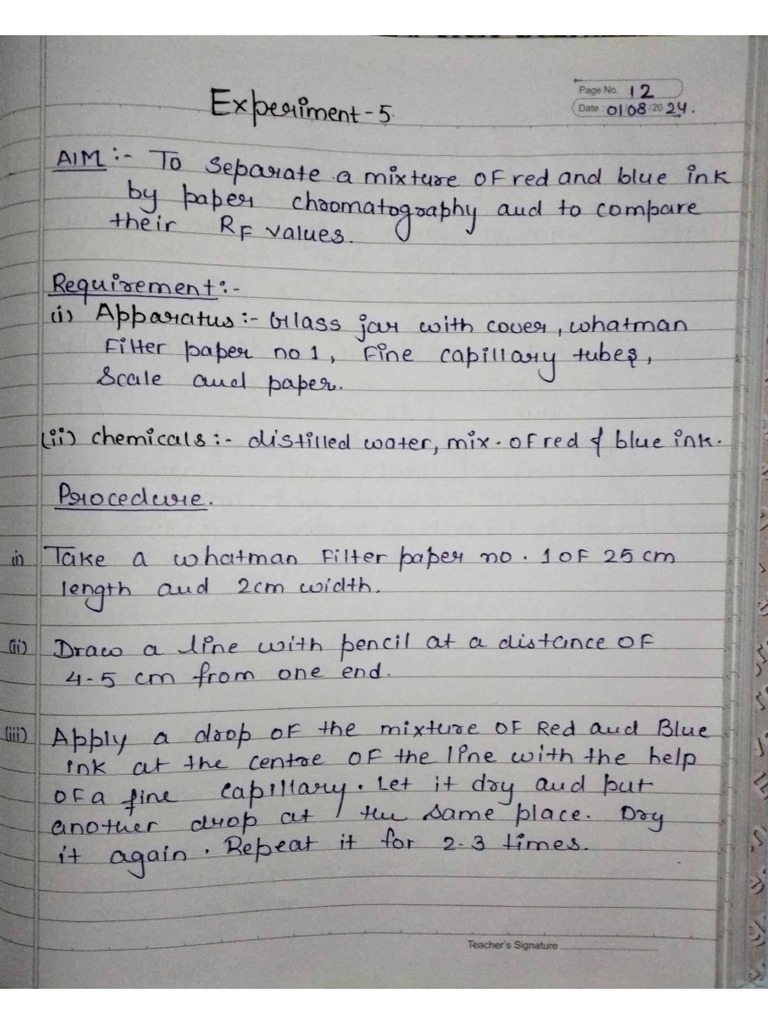 Page No. 12
Date: 01/08/2024.
Experiment-5.
AIM:- To Separate a mixture of red and blue ink
by paper chromatography and to compare
their RF values.
Requirement:-
(i) Apparatus:- Glass jar with cover, whatman
Filter paper no 1, Fine capillary tubes,
Scale and paper.
(ii) chemicals:- distilled water, mix. of red & blue ink.
Procedure.
i) Take a whatman filter paper no. 1 of 25 cm
length and 2cm width.
(ii) Draw a line with pencil at a distance of
4-5 cm from one end.
(iii) Apply a drop of the mixture of Red and Blue
ink at the centre of the line with the help
of a fine capillary. Let it dry and put
another drop at the same place. Dry
it again. Repeat it for 2-3 times.
Teacher's Signature